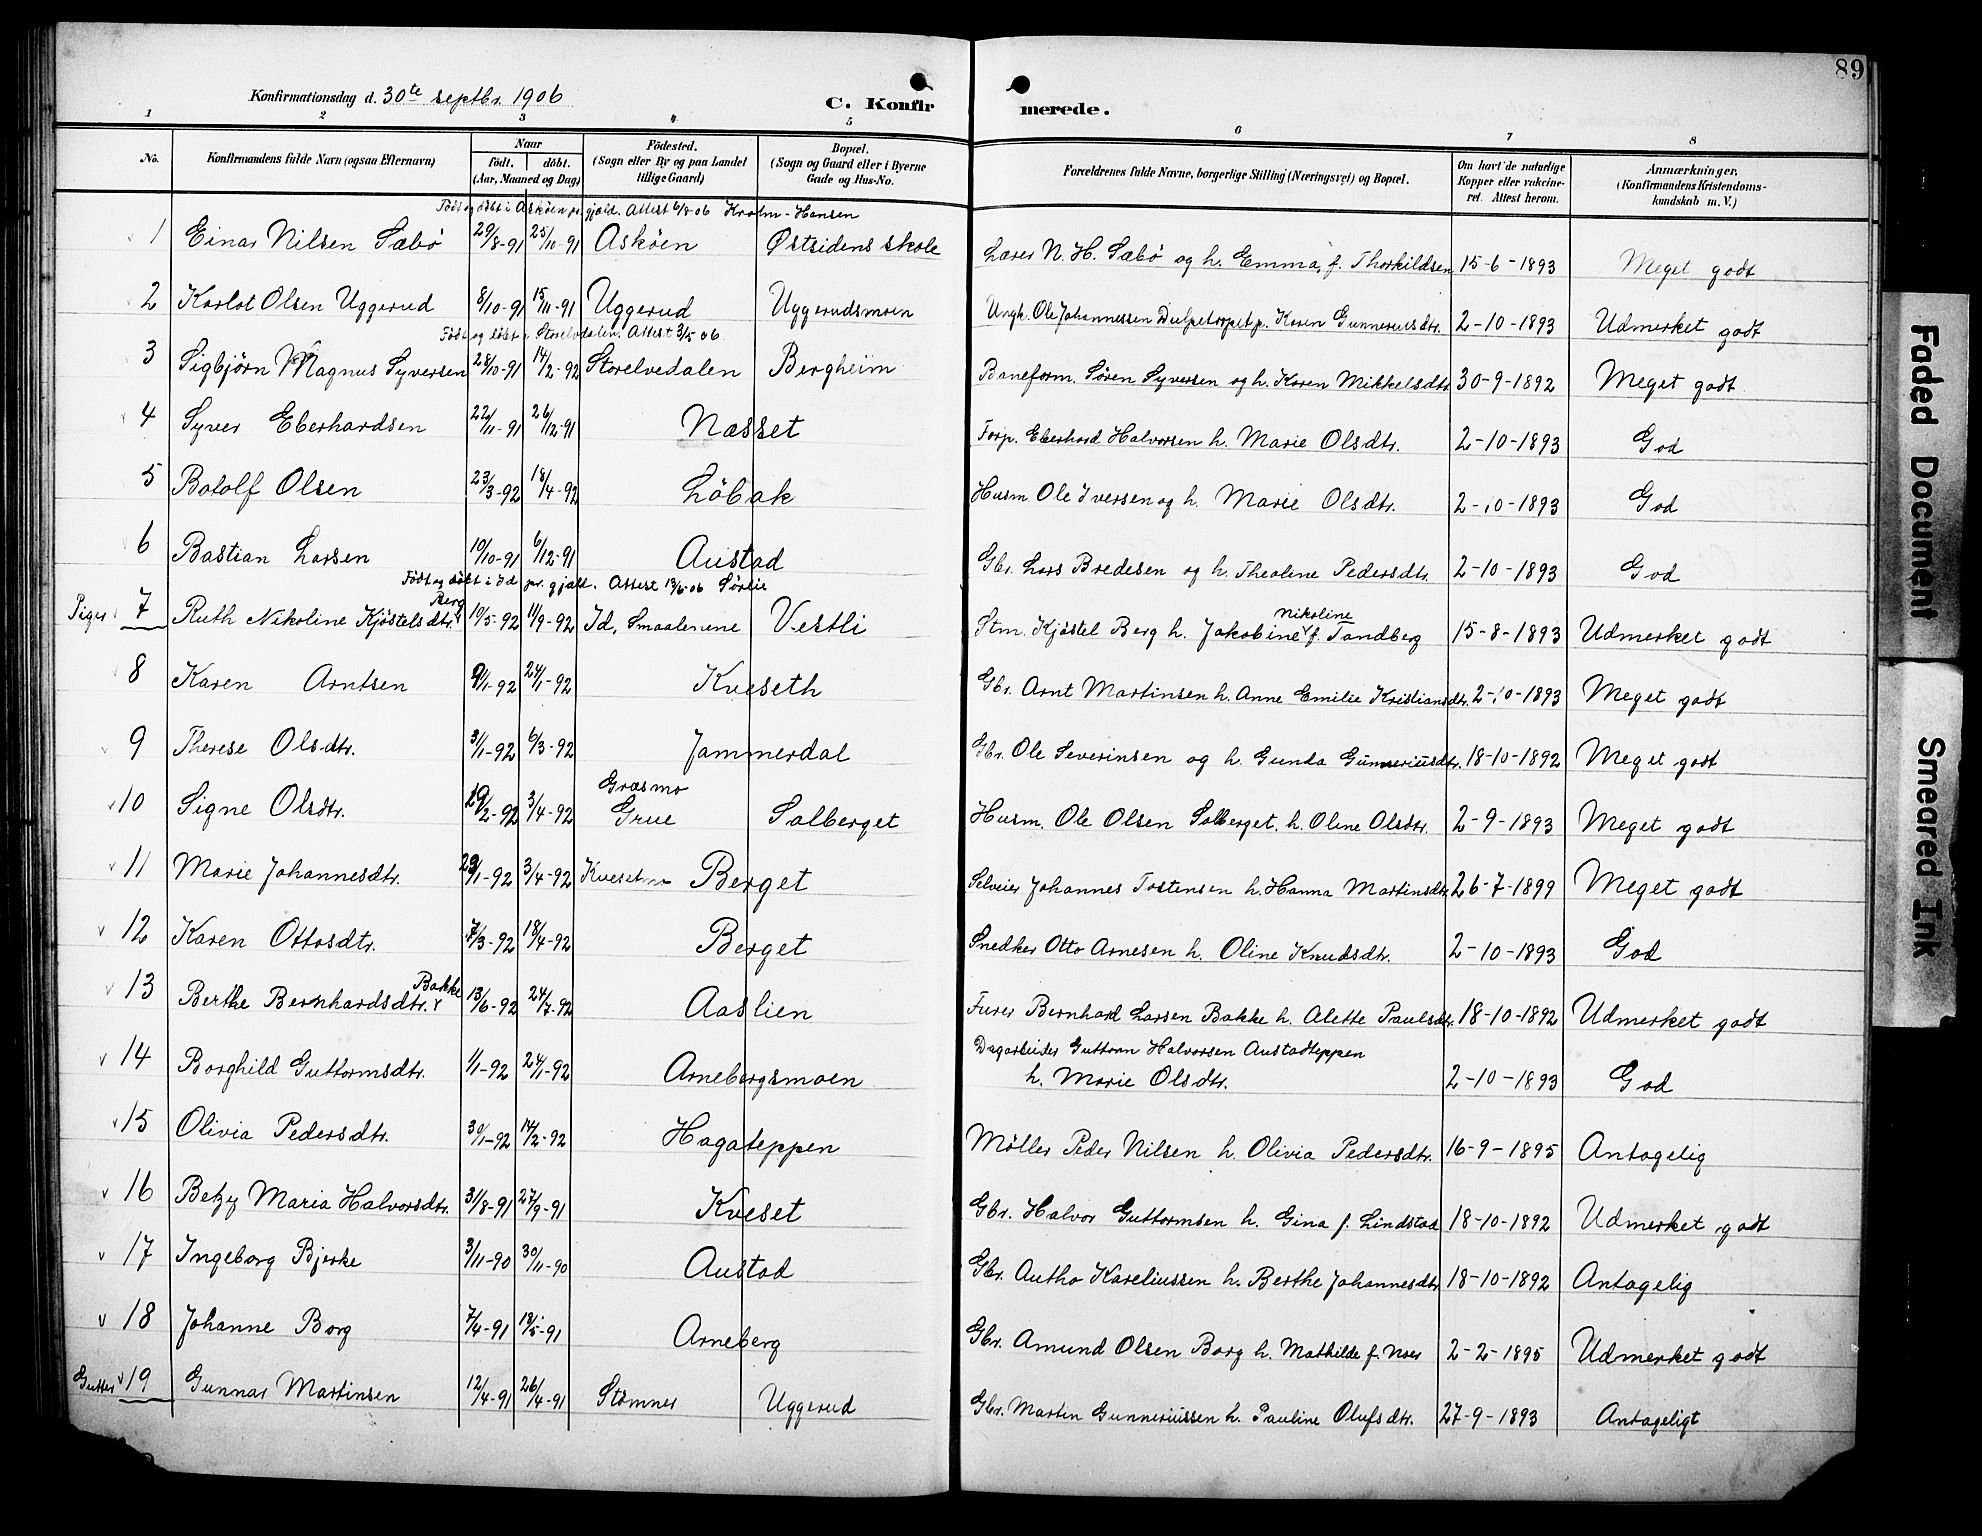 89
Konfirmationsdag d. 30te septbr. 1906
C. Konfirmerede.
1 2 3 4 5 6 7 8
No. Konfirmandens fulde Navn (ogsaa Efternavn) Naar födt. döbt. (Aar, Maaned og Dag) Födested. (Sogn eller By og paa Landet tillige Gaard) Bopæl. (Sogn og Gaard eller i Byerne Gade og Hus-No. Forældrenes fulde Navne, borgerlige Stilling (Næringsvei) og Bopæl. Om havt de naturlige Kopper eller vakcineret. Attest herom. Anmærkninger. (Konfirmandens Kristendomskundskab m. V.)
Født og døbt i Askøen pr. gjæld. Attest 6/8 06 Krohn-Hansen
1 Einar Nilsen Sæbö 29/8-91 25/10-91 Asköen Østsidens skole Lærer N. H. Sæbö og h. Emma, f. Thorkildsen 15-6-1893 Meget godt
2 Karlot Olsen Uggerud 8/10-91 15/11-91 Uggerud Uggerudsmoen Ungk. Ole Johannessen Dulpetorpet p. Karen Gunneriusdtr. 2-10-1893 Udmerket godt
Født og döbt i Storelvdalen. Attest 3/5 06.
3 Sigbjörn Magnus Syversen 28/10-91 14/2-92 Storelvedalen Bergheim Baneform. Sören Syversen og h. Karen Mikkelsdtr 30-9-1892 Meget godt
4 Syver Eberhardsen 22/11-91 26/12-91 Næsset Torp. Eberhard Halvorsen h. Marie Olsdtr. 2-10-1893 God
5 Botolf Olsen 23/3-92 18/4-92 Löbak Husm. Ole Iversen og h. Marie Olsdtr. 2-10-1893 God
6 Bastian Larsen 10/10-91 6/12-91 Austad Gbr. Lars Bredesen og h. Theoline Pedersdtr. 2-10-1893 God
Födt og döbt i Id pr. gjæld. Attest 13/6 06 Sörlie
Piger 7 Ruth Nikoline Kjöstelsdtr. Berg 10/5-92 11/9-92 Id, Smaalenene Vestli Stm. Kjöstel Berg h. Jakobine Nikoline f. Tandberg 15-8-1893 Udmerket godt
8 Karen Arntsen 9/1-92 24/1-92 Kveseth Gbr. Arnt Martinsen h. Anne Emilie Kristiansdtr. 2-10-1893 Meget godt
9 Therese Olsdtr. 31/1-92 6/3-92 Jammerdal Gbr. Ole Severinsen og h. Gunda Gunneriusdtr. 18-10-1892 Meget godt
10 Signe Olsdtr. 29/2-92 3/4-92 Græsmo Grue Solberget Husm. Ole Olsen Solberget, h. Oline Olsdtr. 2-9-1893 Meget godt
11 Marie Johannesdtr. 29/1-92 3/4-92 Berget Selveier Johannes Tostensen h. Hanna Martinsdtr. 26-7-1899 Meget godt
12 Karen Ottosdtr. 7/3-92 18/4-92 Berget Snedker Otto Arnesen h. Oline Knudsdtr. 2-10-1893 God
13 Berthe Bernhardsdtr. Bakke 13/6-92 24/7-92 Aaslien Furer Bernhard Larsen Bakke h. Alette Paulsdtr. 18-10-1892 Udmerket godt
14 Borghild Guttormsdtr. 1/1-92 24/1-92 Arnebergsmoen Dagarbeider Guttorm Halvorsen Austadteppen
h. Marie Olsdtr. 2-10-1893 God
15 Olivia Pedersdtr. 30/1-92 14/2-92 Hagateppen Möller Peder Nilsen h. Olivia Pedersdtr. 16-9-1895 Antagelig
16 Betzy Maria Halvorsdtr. 31/8-91 27/9-91 Kveset Gbr. Halvor Guttormsen h. Gina f. Lindstad 18-10-1892 Udmerket godt
17 Ingeborg Bjerke 3/11-90 30/11-90 Austad Gbr. Autho Kareliussen h. Berthe Johannesdtr 18-10-1892 Antagelig
18 Johanne Borg 7/4-91 18/5-91 Arneberg Gbr. Amund Olsen Borg h. Mathilde f. Noer 2-2-1895 Udmerket godt
Gutter 19 Gunnar Martinsen 12/4-91 26/4-91 Stömner Uggerud Gbr. Martin Gunneriussen h. Pauline Olufsdtr. 27-9-1893 Antageligt
Faded Document
Smeared Ink